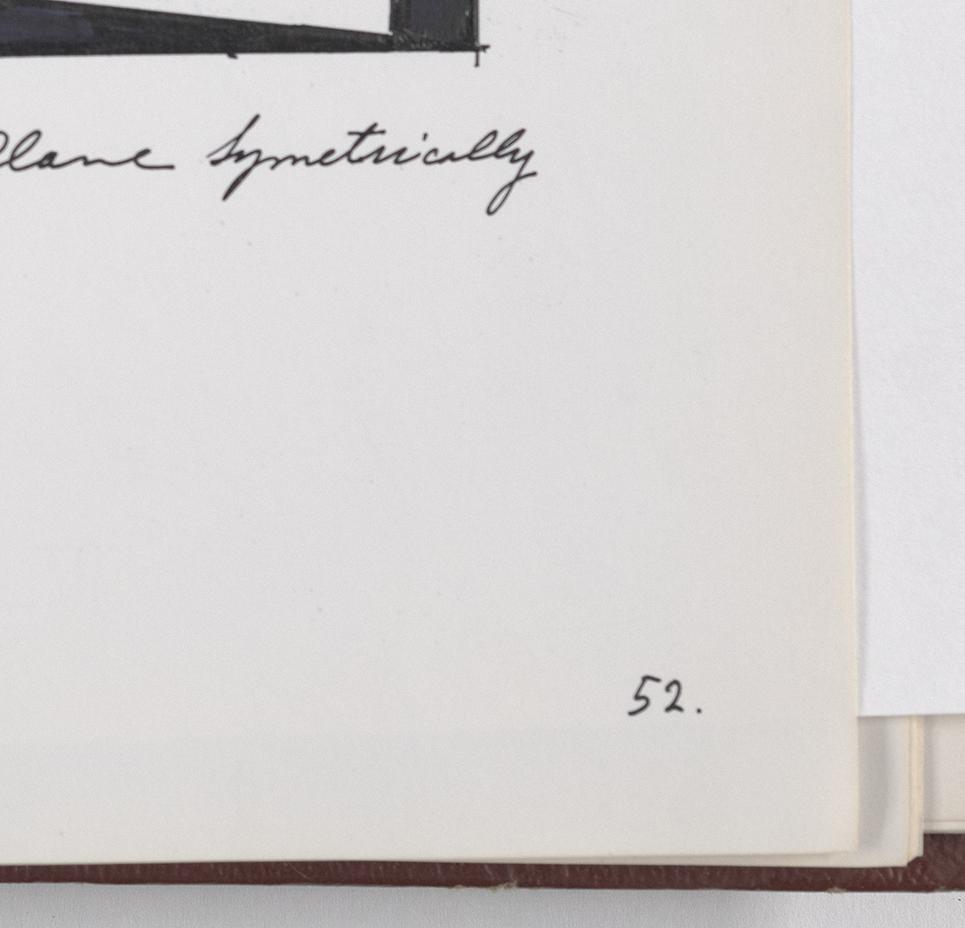 Plane Symetrically
52.